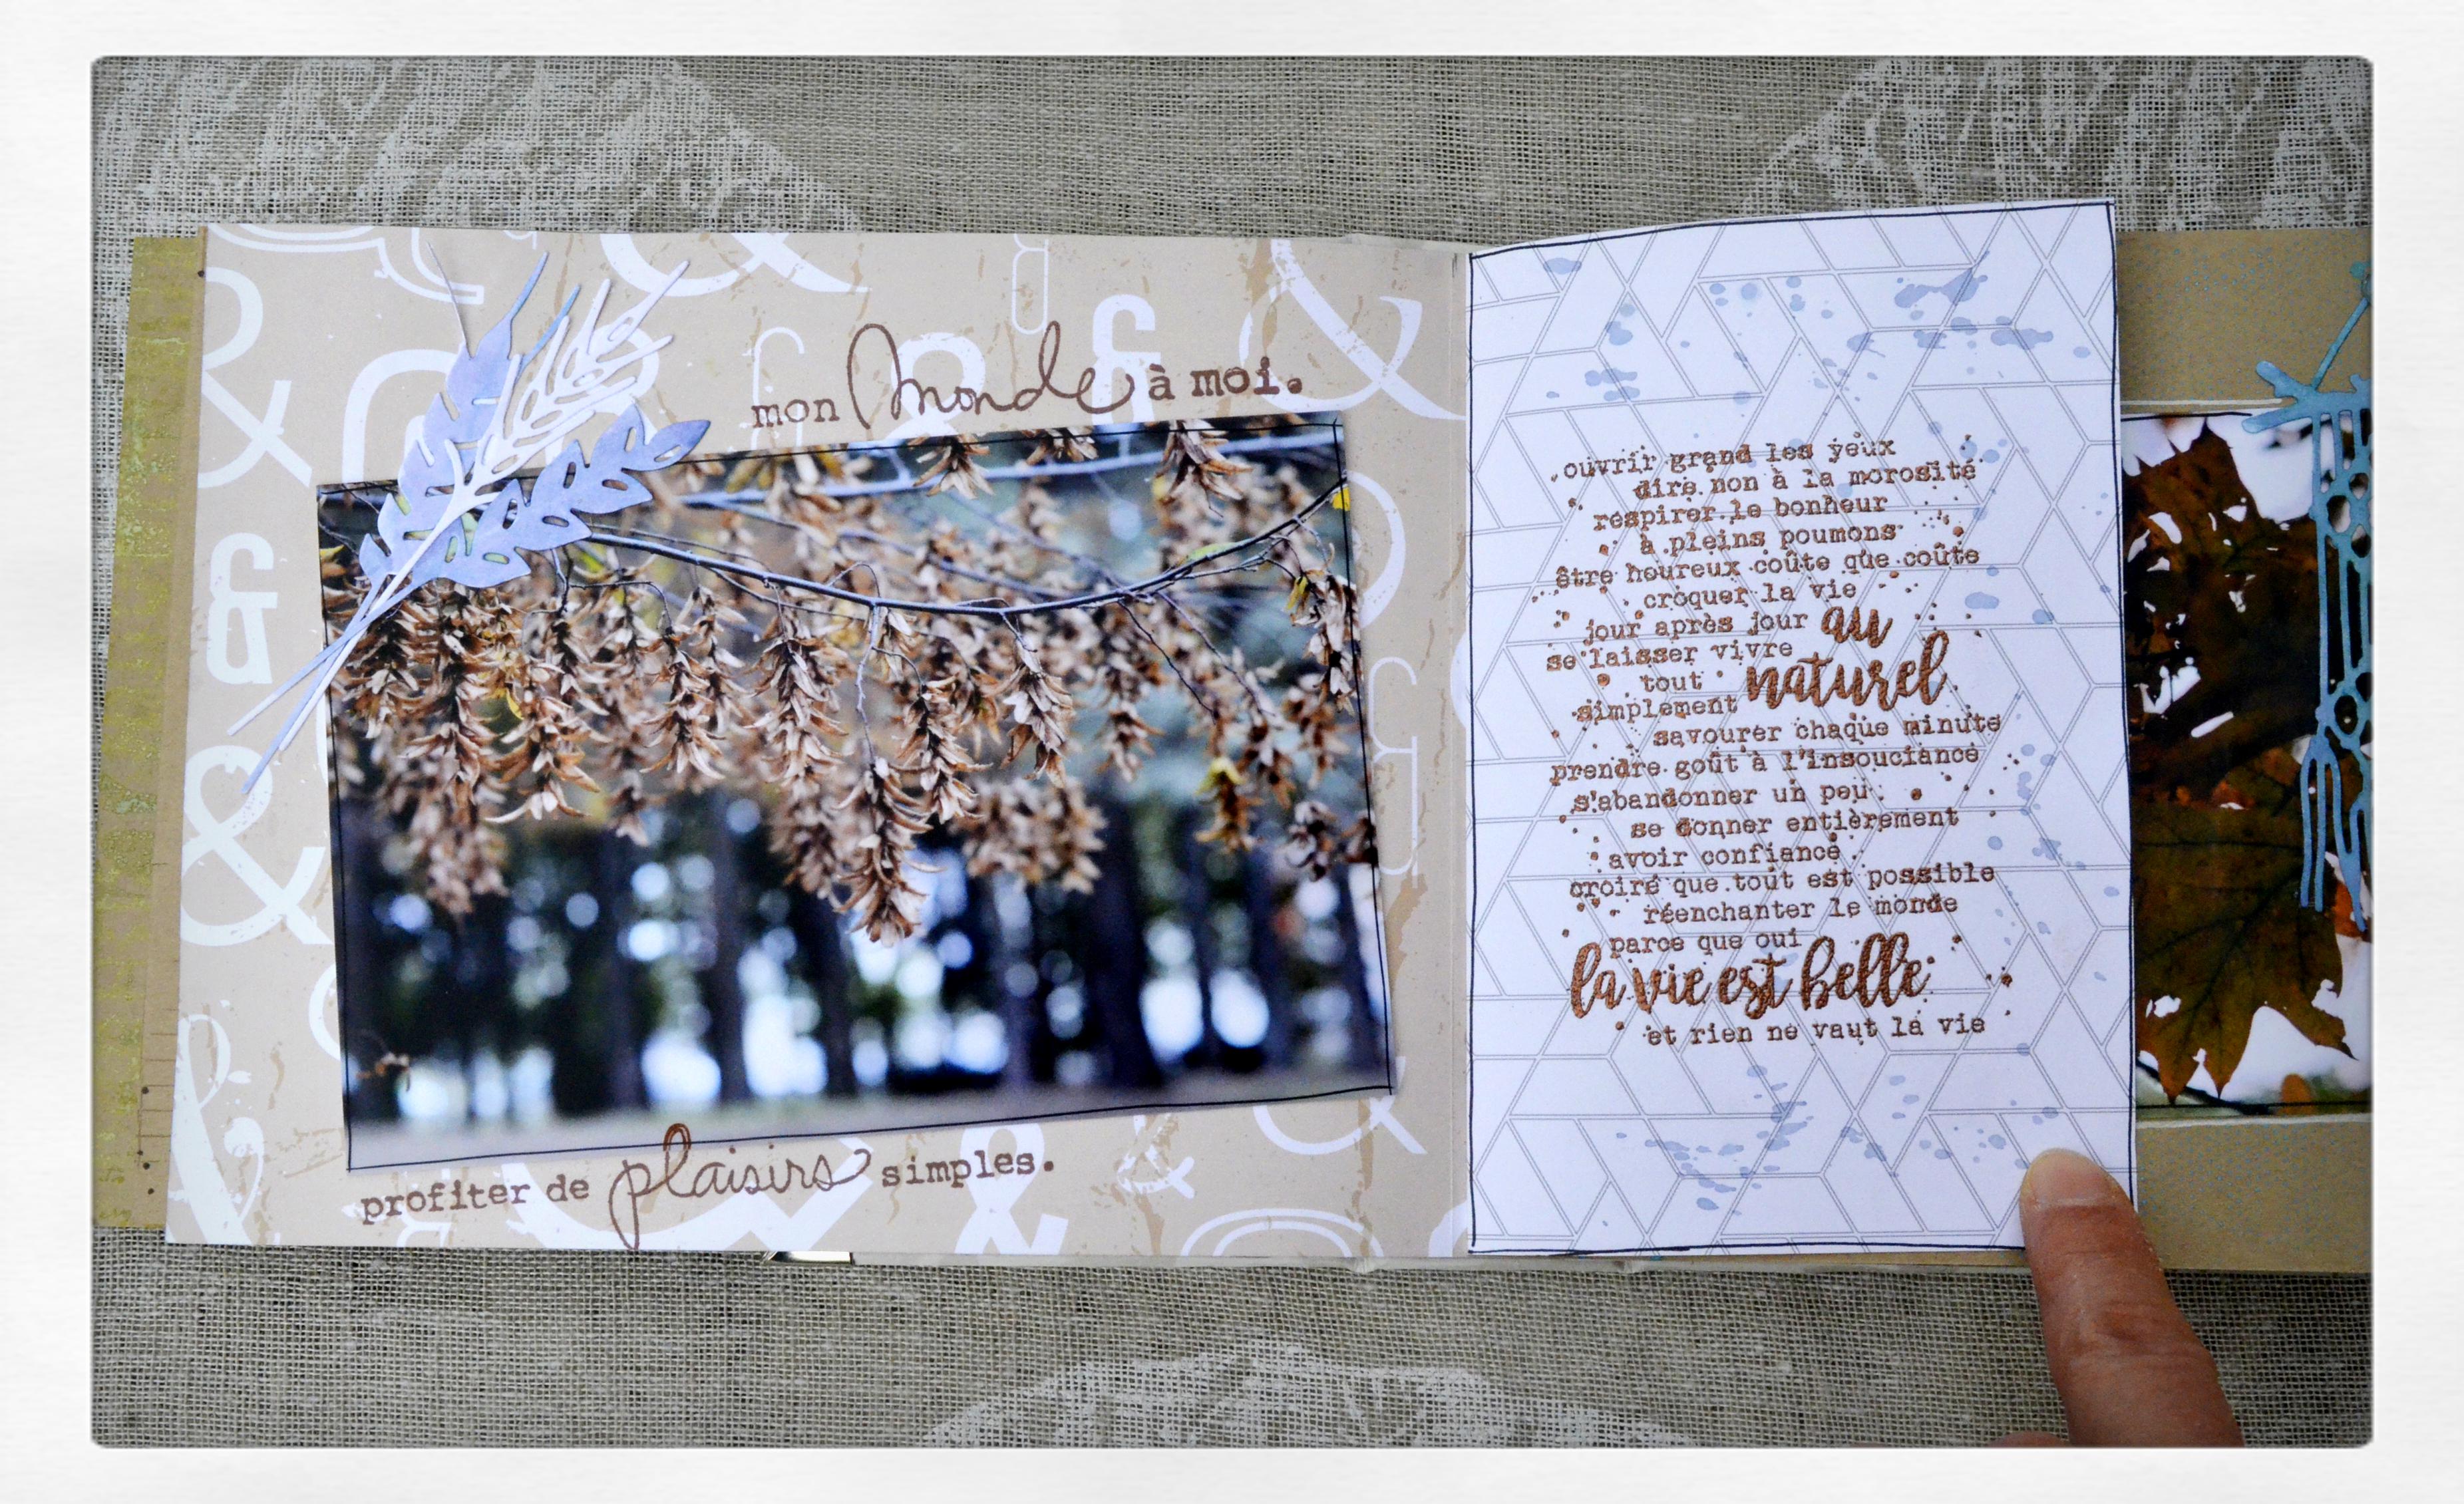 mon Monde à moi.
profiter de plaisirs simples.
ouvrir grand les yeux
dire non à la morosité
respirer le bonheur
à pleins poumons
être heureux coûte que coûte
croquer la vie
jour après jour au
se laisser vivre
tout naturel
simplement
savourer chaque minute
prendre goût à l'insouciance
s'abandonner un peu
se donner entièrement
avoir confiance
croire que tout est possible
réenchanter le monde
parce que oui
la vie est belle
et rien ne vaut la vie